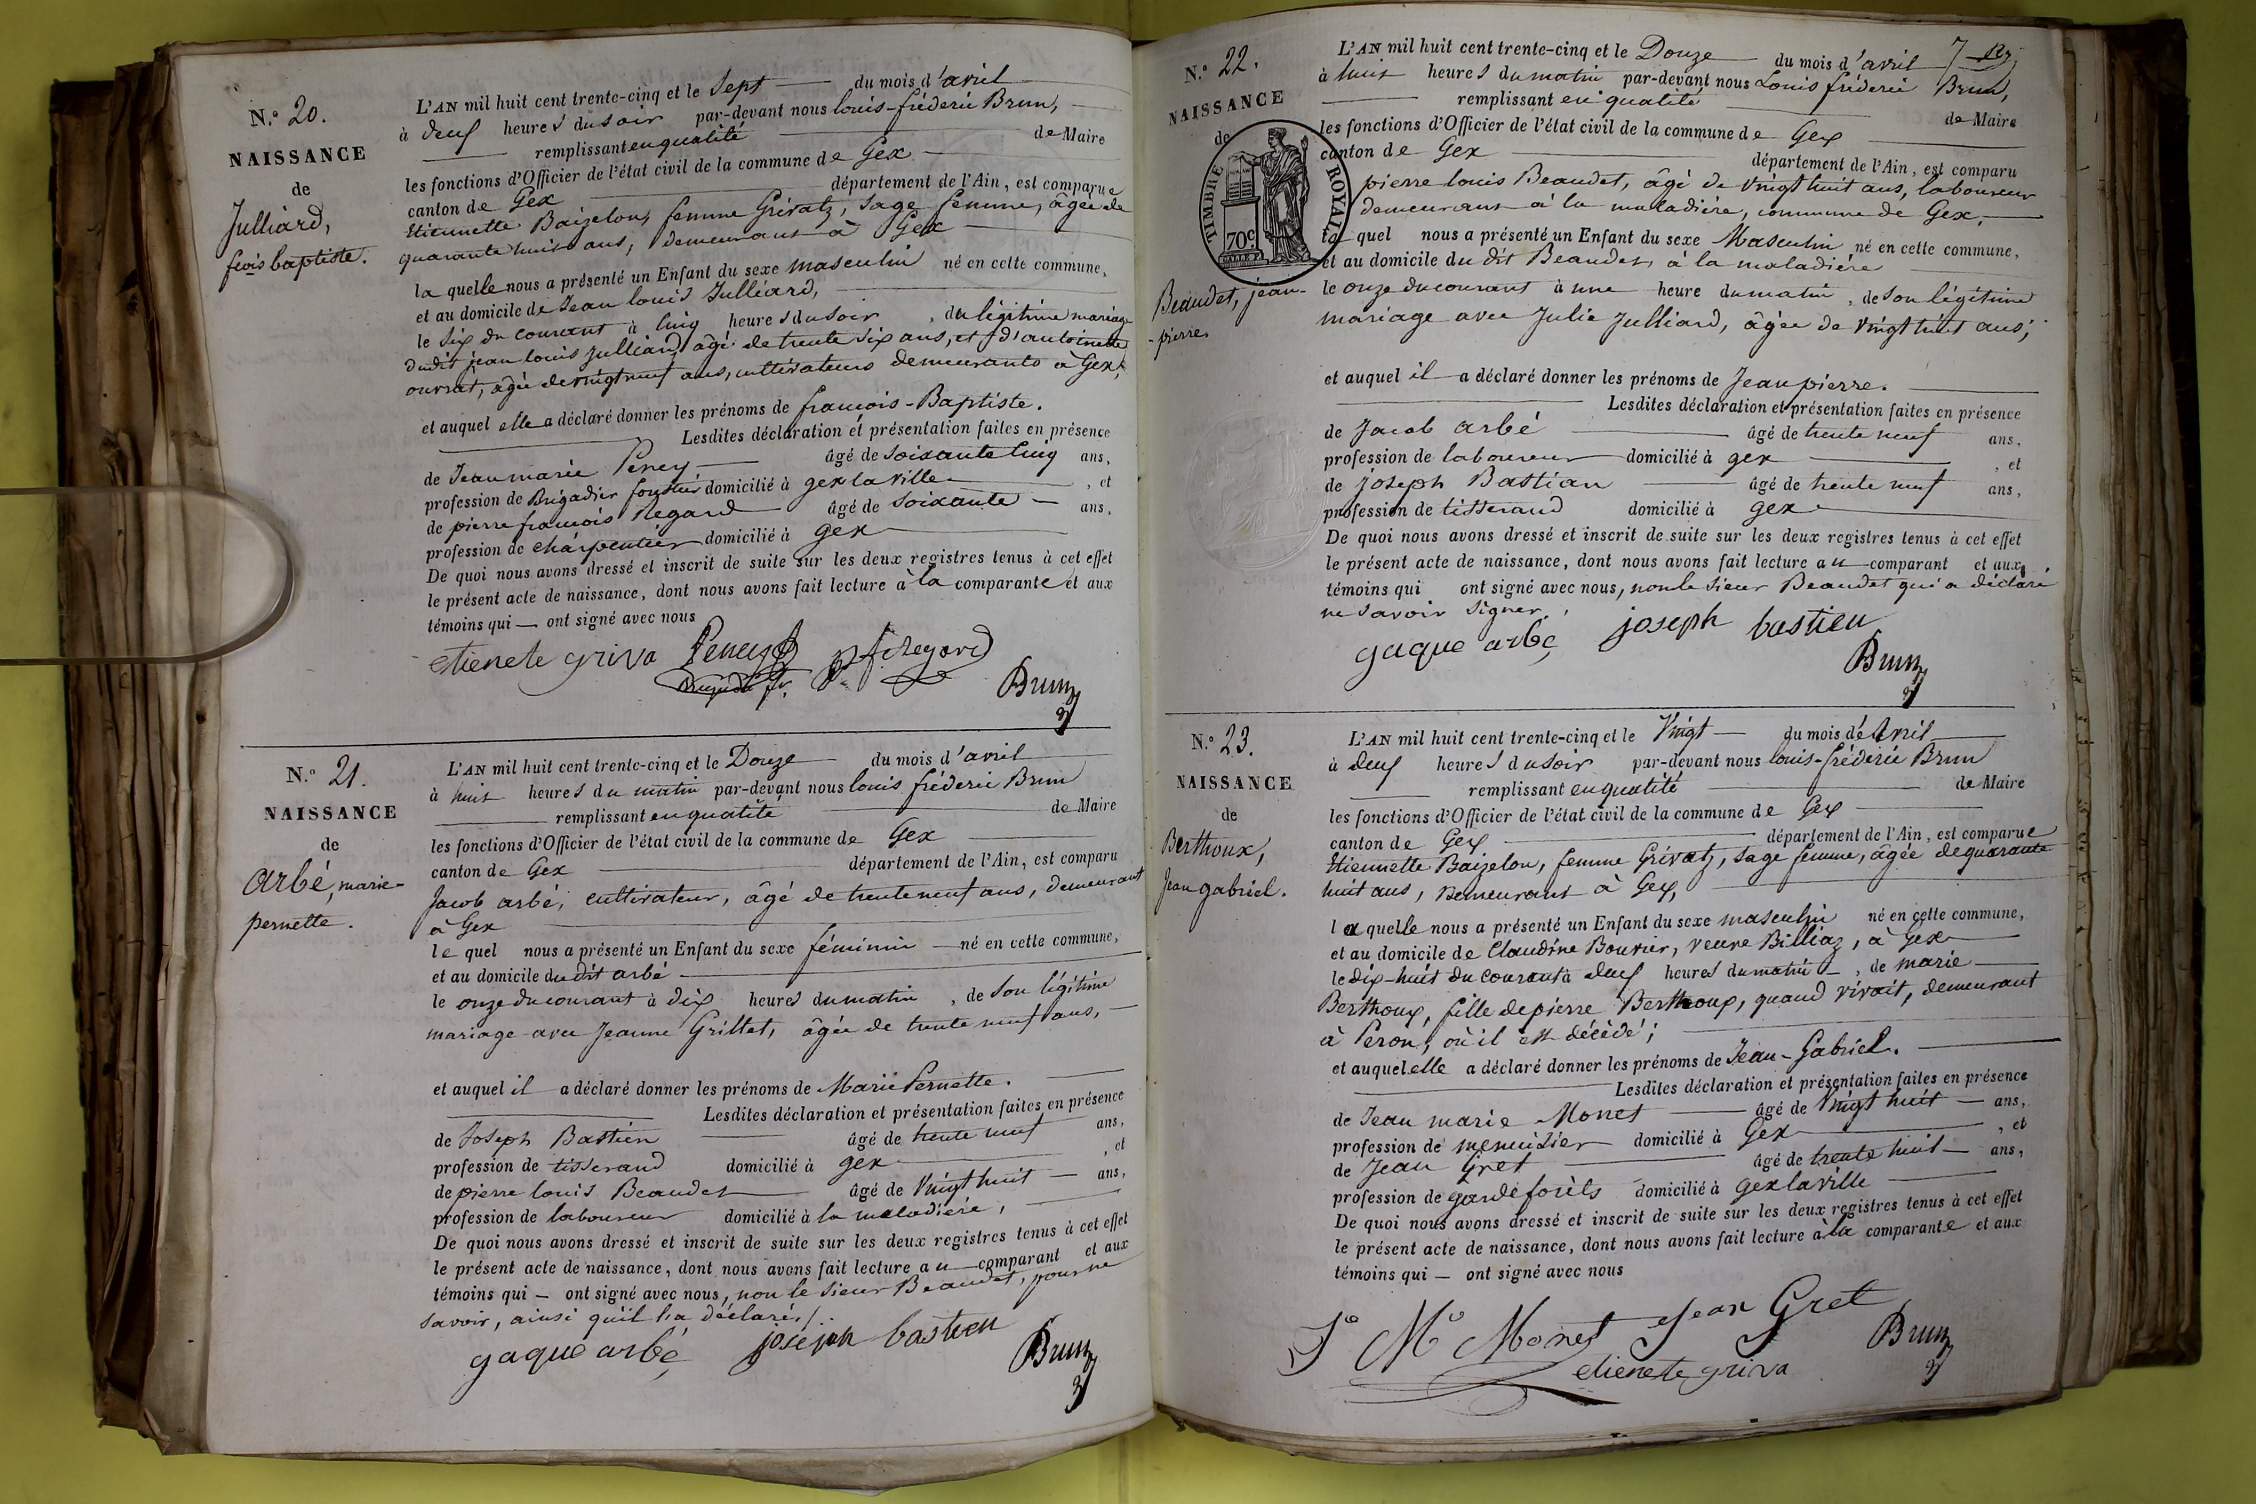 N.° 20.
NAISSANCE
de
Julliard,
fcois baptiste.
L'AN mil huit cent trente-cinq et le Sept du mois d'avril
à deux heures du soir par-devant nous louis-fréderic Brun,
remplissant en qualité de Maire
les fonctions d'Officier de l'état civil de la commune de Gex
canton de Gex département de l'Ain, est comparue
Etiennette Baizelon, femme Grivatz, Sage femme, âgée de
quarante huit ans, demeurant à Gex
la quelle nous a présenté un Enfant du sexe masculin né en cette commune,
et au domicile de Jean louis Julliard,
le Six du courant à cinq heures du soir, du légitime mariage
dudit jean louis Julliard âgé de trente six ans, et d'antoinette
ouvrat, âgée de vingt neuf ans, cultivateurs demeurants à Gex,
et auquel elle a déclaré donner les prénoms de françois-Baptiste.
Lesdites déclaration et présentation faites en présence
de Jean marie Peney âgé de Soixante cinq ans,
profession de Brigadier forestier domicilié à gex la ville, et
de pierre françois Regard âgé de Soixante ans,
profession de charpentier domicilié à gex
De quoi nous avons dressé et inscrit de suite sur les deux registres tenus à cet effet
le présent acte de naissance, dont nous avons fait lecture à la comparante et aux
témoins qui ont signé avec nous
etienete griva Peney pf Regard
Brun
N.° 21.
NAISSANCE
de
Arbé, marie-
pernette.
L'AN mil huit cent trente-cinq et le Douze du mois d'avril
à huit heures du matin par-devant nous louis fréderic Brun
remplissant en qualité de Maire
les fonctions d'Officier de l'état civil de la commune de Gex
canton de Gex département de l'Ain, est comparu
Jacob arbé, cultivateur, âgé de trente neuf ans, demeurant
à Gex
le quel nous a présenté un Enfant du sexe féminin né en cette commune,
et au domicile dudit arbé
le onze du courant à dix heures du matin, de Son légitime
mariage avec Jeanne Grillet, âgée de trente neuf ans,
et auquel il a déclaré donner les prénoms de Marie Pernette.
Lesdites déclaration et présentation faites en présence
de Joseph Bastien âgé de trente neuf ans,
profession de tisserand domicilié à gex, et
de pierre louis Beaudet âgé de Vingt huit ans,
profession de laboureur domicilié à la maladière,
De quoi nous avons dressé et inscrit de suite sur les deux registres tenus à cet effet
le présent acte de naissance, dont nous avons fait lecture au comparant et aux
témoins qui ont signé avec nous, non le sieur Beaudet, pour ne
savoir, ainsi qu'il l'a déclaré.
gaque arbé joseph bastien
Brun
N.° 22.
NAISSANCE
de
TIMBRE ROYAL
70c
Beaudet, jean-
-pierre
7
L'AN mil huit cent trente-cinq et le Douze du mois d'avril
à huit heures du matin par-devant nous Louis fréderic Brun,
remplissant en qualité de Maire
les fonctions d'Officier de l'état civil de la commune de Gex
canton de Gex département de l'Ain, est comparu
pierre louis Beaudet, âgé de vingt huit ans, laboureur
demeurant à la maladière, commune de Gex,
le quel nous a présenté un Enfant du sexe Masculin né en cette commune,
et au domicile du dit Beaudet, à la maladière
le onze du courant à une heure du matin, de Son légitime
mariage avec Julie Julliard, âgée de vingt huit ans;
et auquel il a déclaré donner les prénoms de Jean pierre.
Lesdites déclaration et présentation faites en présence
de Jacob arbé âgé de trente neuf ans,
profession de laboureur domicilié à gex, et
de joseph Bastian âgé de trente neuf ans,
profession de tisserand domicilié à gex
De quoi nous avons dressé et inscrit de suite sur les deux registres tenus à cet effet
le présent acte de naissance, dont nous avons fait lecture au comparant et aux
témoins qui ont signé avec nous, non le sieur Beaudet qui a déclaré
ne savoir signer.
gaque arbé joseph bastien
Brun
N.° 23.
NAISSANCE
de
Berthoux,
Jean gabriel.
L'AN mil huit cent trente-cinq et le Vingt du mois d'Avril
à deux heures du soir par-devant nous louis-fréderic Brun
remplissant en qualité de Maire
les fonctions d'Officier de l'état civil de la commune de Gex
canton de Gex département de l'Ain, est comparue
Etiennette Baizelon, femme Grivatz, sage femme, âgée de quarante
huit ans, demeurant à Gex,
la quelle nous a présenté un Enfant du sexe masculin né en cette commune,
et au domicile de Claudine Bouvier, veuve Billiaz, à Gex
le dix-huit du courant à deux heures du matin, de marie
Berthoux, fille de pierre Berthoux, quand vivait, demeurant
à Peron, où il est décédé;
et auquel elle a déclaré donner les prénoms de Jean-Gabriel.
Lesdites déclaration et présentation faites en présence
de Jean marie Monet âgé de Vingt huit ans,
profession de menuisier domicilié à Gex, et
de Jean Gret âgé de trente huit ans,
profession de garde forêts domicilié à Gex la ville
De quoi nous avons dressé et inscrit de suite sur les deux registres tenus à cet effet
le présent acte de naissance, dont nous avons fait lecture à la comparante et aux
témoins qui ont signé avec nous
Jn Me Monet Jean Gret
etienete griva
Brun